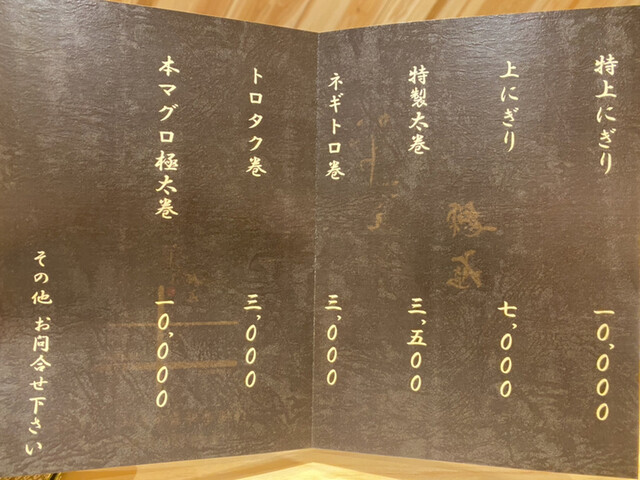 特上にぎり 一〇,〇〇〇
上にぎり 七,〇〇〇
特製太巻 三,五〇〇
ネギトロ巻 三,〇〇〇
トロタク巻 三,〇〇〇
本マグロ極太巻 一〇,〇〇〇
その他 お問合せ下さい